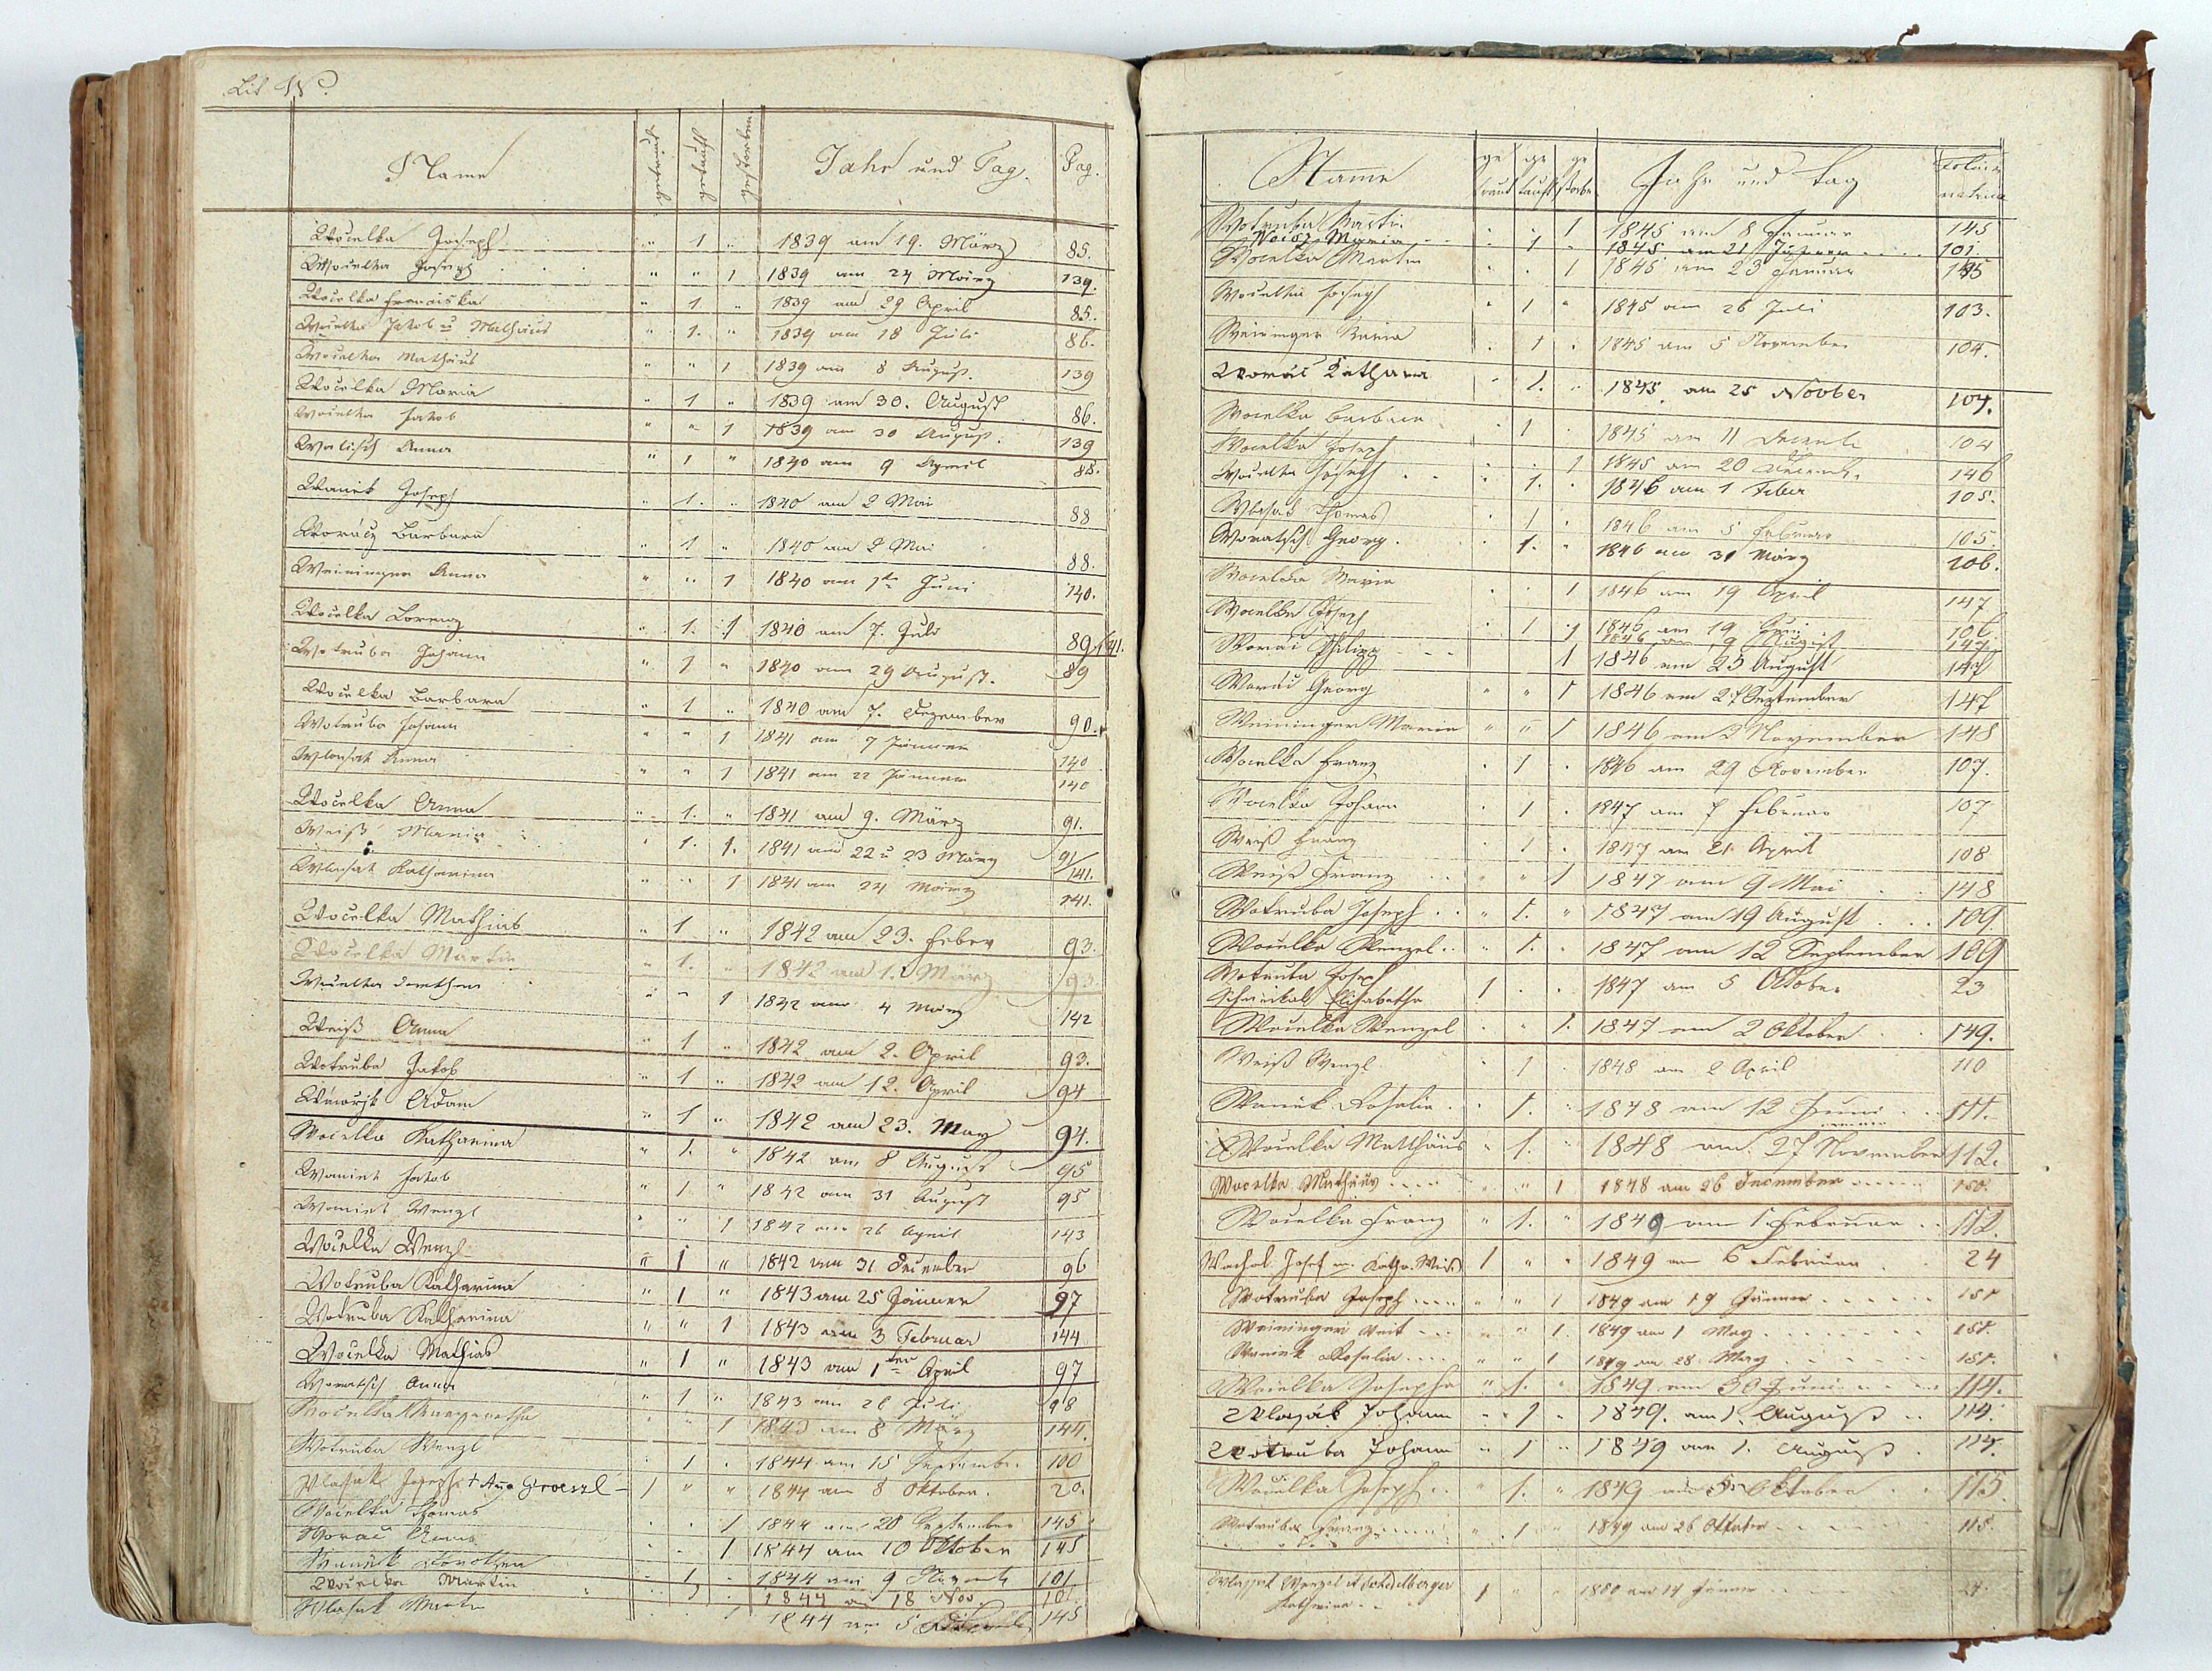 Lit W.
Name getraut getauft gestorben Jahr und Tag. Pag.
Wocelka Joseph " 1 " 1839 am 19. März 85.
Wocelka Joseph " " 1 1839 am 24 März 139.
Wocelka Franciska " 1. " 1839 am 29 April 85.
Wocelka Jakob u Mathäus " 1. " 1839 am 18 Juli 86.
Wocelka Mathäus " " 1 1839 am 8 August. 139
Wocelka Maria " 1 " 1839 am 30. August 86.
Wocelka Jakob " " 1 1839 am 30 August. 139
Walisch Anna " 1 " 1840 am 9 April 88.
Waniek Joseph " 1. " 1840 am 2 Mai 88
Woraćz Barbara " 1 " 1840 am 2 Mai 88.
Weininger Anna " " 1 1840 am 1ten Juni 140.
Wocelka Lorenz " 1. 1 1840 am 7. Juli 89./141.
Wotruba Johann " 1 " 1840 am 29 August. 89
Wocelka Barbara " 1 " 1840 am 7. Dezember 90.
Wotruba Johann " " 1 1841 am 7 Jänner 140
Wlasak Anna " " 1 1841 am 22 Jänner 140
Wocelka Anna " 1. " 1841 am 9. März 91.
Weiß Maria " 1. 1. 1841 am 22 u 23 März 91/141.
Wlasak Katharina " " 1 1841 am 24 März 141.
Wocelka Mathias " 1 " 1842 am 23. Feber 93.
Wocelka Martin " 1. " 1842 am 1. März 93.
Wocelka Dorothea " " 1 1842 am 4 März 142
Weiß Anna " 1 " 1842 am 2. April 93.
Wotruba Jakob " 1 " 1842 am 12. April 94
Adam " 1 " 1842 am 23. May 94.
Wocelka Katharina " 1. " 1842 am 8 August 95
Waniek Jakob " 1 " 1842 am 31 August 95
Waniek Wenzl " " 1 1842 am 26 April 143
Wocelka Wenzl " 1 " 1842 am 31 December 96
Wotruba Katharina " 1 " 1843 am 25 Jänner 97
Wotruba Katharina " " 1 1843 am 3 Februar 144
Wocelka Mathias " 1 " 1843 am 1ten April 97
Woratsch Anna " 1 " 1843 am 26 Juli 98
Wocelka Margaretha " " 1 1843 am 8 März 144.
Wotruba Wenzl " 1 . 1844 am 15 September 100
Wlasak Joseph + Anna Groessl 1 " " 1844 am 8 Oktober. 20.
Wocelka Thomas . . 1 1844 am 28 September 145
Worać Anna . . 1 1844 am 10 Oktober 145
Waniek Dorothea . 1 . 1844 am 9 Novemb 101
Wocelka Martin . 1 . 1844 am 18 Nov. 101
Wlasak Martin . . 1 1844 am 5 145
Name getraut getauft gestorben Jahr und Tag
Wotruba Martin . . 1 1845 am 8 Januar 145
Weisz Maria . 1 . 1845 am 21 Jänner 101
Wocelka Martin . . 1 1845 am 23 Januar 145
Wocelka Joseph " 1 " 1845 am 26 Juli 103.
Weininger Maria . 1 . 1845 am 5 November 104.
Woráć Katharia " 1. " 1845. am 25 Novber 104.
Wocelka Barbara . 1 . 1845 am 11 Decemb 104
Wocelka Joseph . . 1 1845 am 20 Decemb. 146
Wocelka Joseph . 1. . 1846 am 1 Feber 105.
Wlasak Thomas . 1 . 1846 am 5 Februar 105.
Woratsch Georg . 1. " 1846 am 31 März 106.
Wocelka Maria . . 1 1846 am 19 April 147
Wocelka Joseph . 1 . 1846 am 19 106
1 1846 am 9 August 147.
Woráć Philipp 1 1846 am 23 August 147
Woráć Georg " " 1 1846 am 27 September 147
Weininger Maria " " 1 1846 am 2 November 148
Wocelka Franz . 1 . 1846 am 29 November 107.
Wocelka Johann . 1 . 1847 am 7 Februar 107
Weiß Franz . 1 . 1847 am 21 April 108
Weiß Franz . . 1 1847 am 9 Mai 148
Wotruba Joseph " 1. " 1847 am 19 August 109.
Wocelka Wenzel " 1. . 1847 am 12 September 109
Wotruba Joseph
Elisabetha 1 . . 1847 am 5 Oktober 23
Wocelka Wenzel . " 1. 1847 am 2 Oktober 149.
Weiß Wenzl . 1 . 1848 am 2 April 110
Waniek Rosalia . 1. " 1848 am 12 Juni 111.
Wocelka Matthäus " 1. " 1848 am 27 November 112.
Wocelka Mathäus " " 1 1848 am 26 December 150.
Wocelka Franz " 1. " 1849 am 1. Februar 112.
Wachal Josef m. Katha. Weiß 1 " " 1849 am 6 Februar 24
Wotruba Joseph " " 1 1849 am 19 Jänner 151
Weininger Veit " " 1 1849 am 1 May 151.
Waniek Rosalia " " 1 1849 am 28 May 151.
Wocelka Josepha " 1. " 1849 am 30 Juni 114.
Wlazák Johann " 1 " 1849. am 1. August 114.
Wotruba Johann " 1 " 1849 am 1. August 114.
Wocelka Joseph " 1. " 1849 am 5. Oktober 115.
Wotruba Franz " 1 " 1849 am 26 Oktober 115.
Wenzel et Schidlberger
Katharina 1 " " 1850 am 14 Jänner 24.